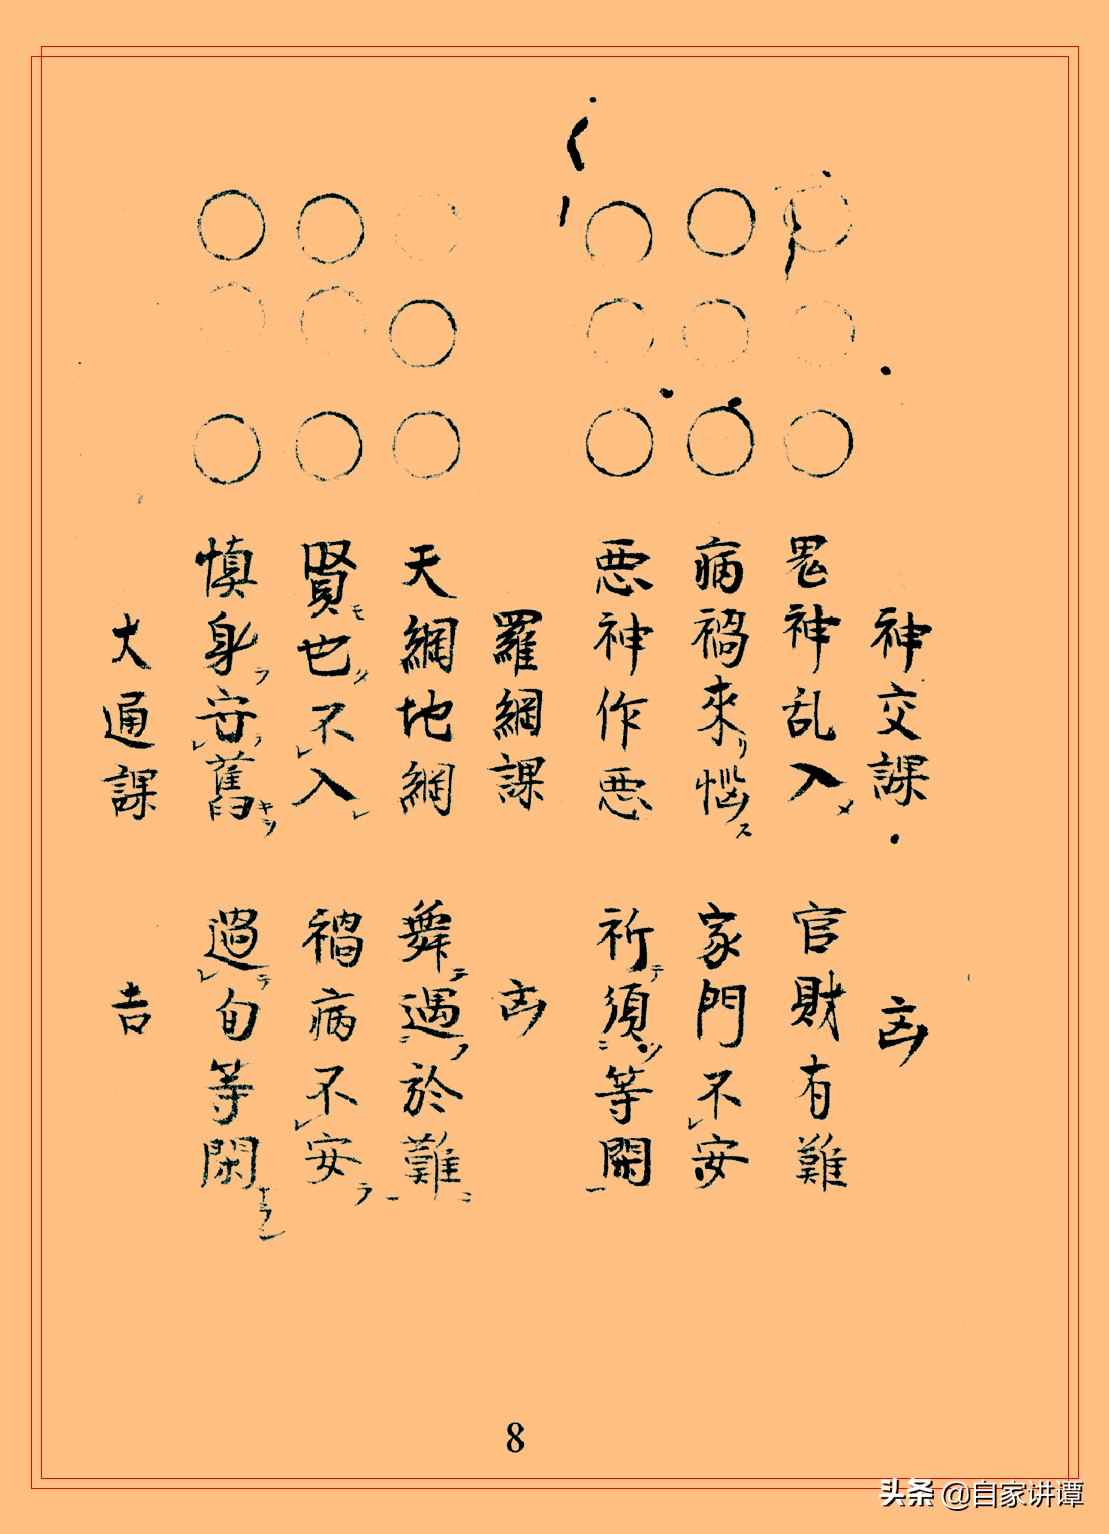 神交課 㐫
鬼神乱入 官財有難
病禍來リ惱ス 家門不レ安
悪神作悪 祈テ須等閑
羅網課 㐫
天網地網 舞テ遇フ於難ニ
賢モ也タ不レ入レ 禍病不レ安ラ
慎身守舊 過旬等閑
大通課 吉
8
头条 @自家讲谭